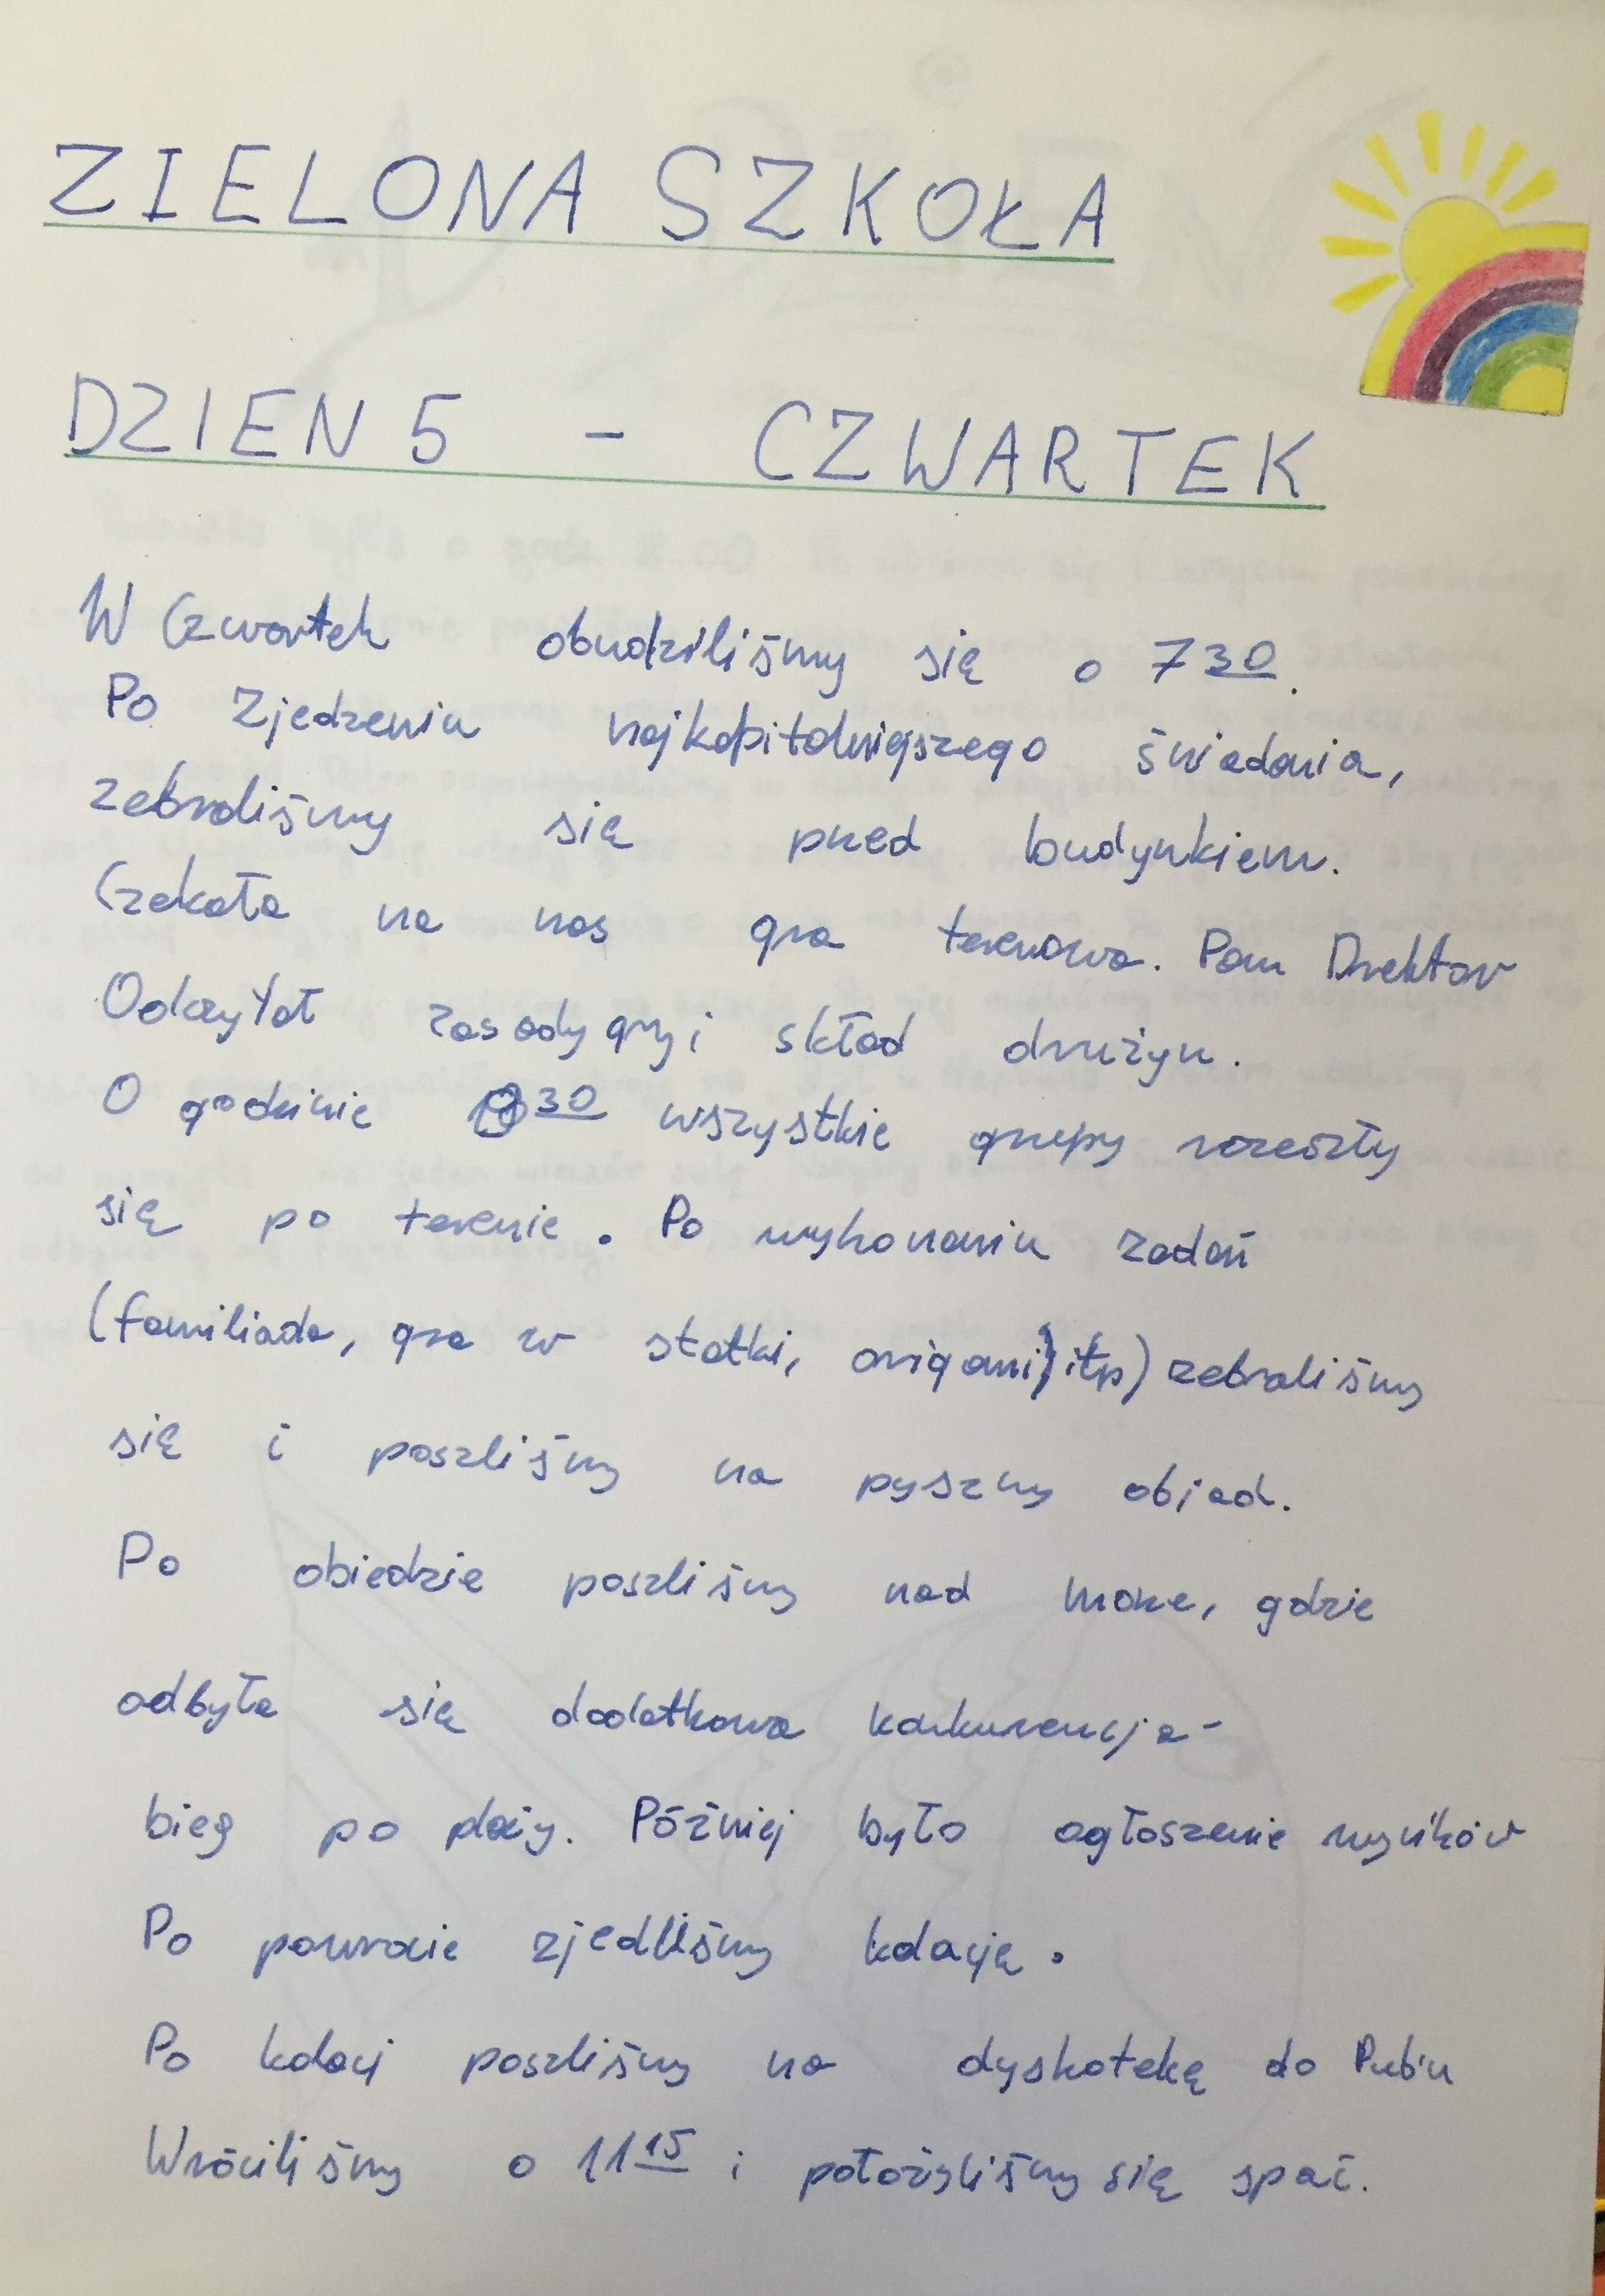 ZIELONA SZKOŁA
DZIEN 5 - CZWARTEK
W Czwartek obudziliśmy się o 7 30.
Po Zjedzeniu najkapitalniejszego śniadania,
zebraliśmy się przed budynkiem.
Czekała na nas gra terenowa. Pan Drektor
Odczytał zasady gry i skład drużyn.
O godzinie 30 wszystkie grupy rozeszły
się po terenie. Po wykonaniu zadań
(familiada, gra w statki, origami, itp) zebraliśmy
się i poszliśmy na pyszny obiad.
Po obiedzie poszliśmy nad morze, gdzie
odbyła się dodatkowa konkurencja-
bieg po plaży. Później było ogłoszenie wyników
Po powrocie zjedliśmy kolację.
Po kolacj poszliśmy na dyskotekę do Pubu
Wróciliśmy o 11 15 i położyliśmy się spać.